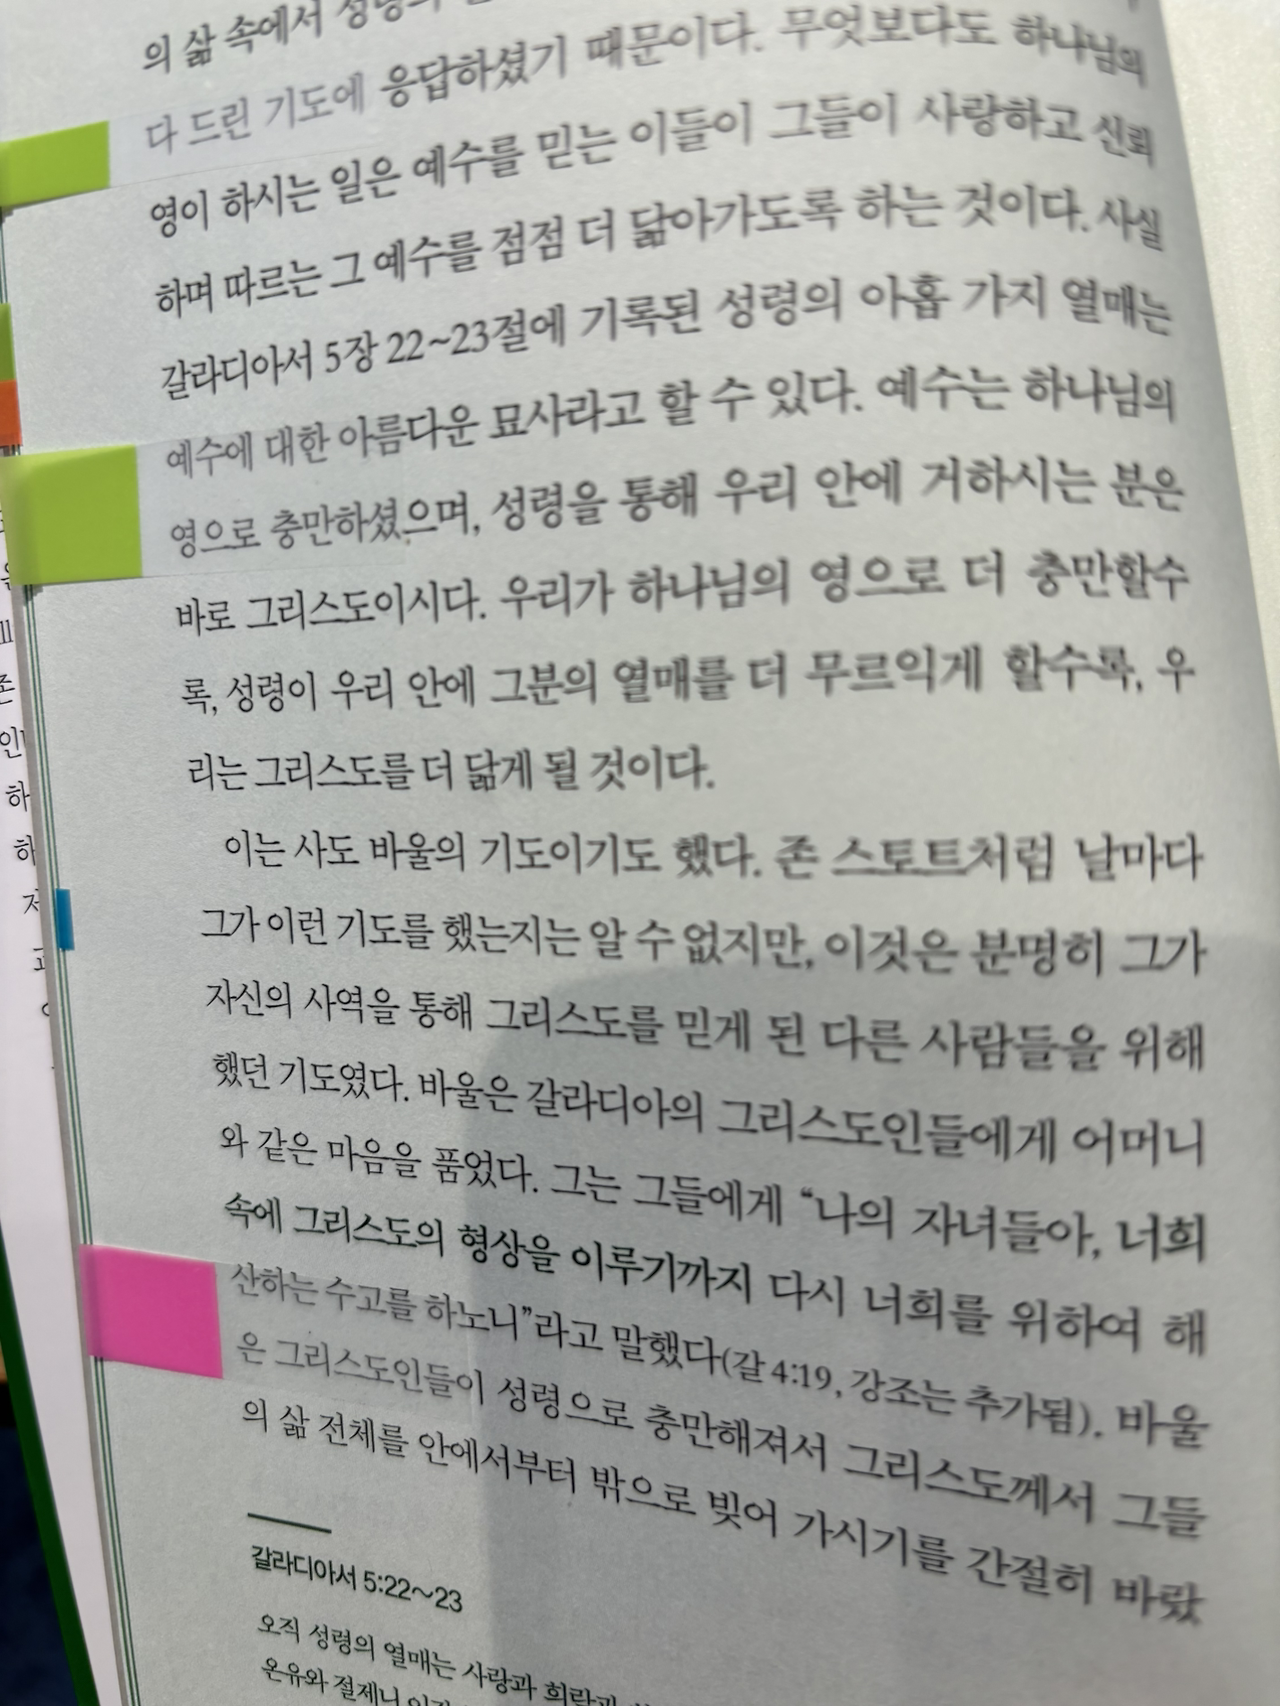 의 삶 속에서 성령의
다 드린 기도에 응답하셨기 때문이다. 무엇보다도 하나님의
영이 하시는 일은 예수를 믿는 이들이 그들이 사랑하고 신뢰
하며 따르는 그 예수를 점점 더 닮아가도록 하는 것이다. 사실
갈라디아서 5장 22~23절에 기록된 성령의 아홉 가지 열매는
예수에 대한 아름다운 묘사라고 할 수 있다. 예수는 하나님의
영으로 충만하셨으며, 성령을 통해 우리 안에 거하시는 분은
바로 그리스도이시다. 우리가 하나님의 영으로 더 충만할수
록, 성령이 우리 안에 그분의 열매를 더 무르익게 할수록, 우
리는 그리스도를 더 닮게 될 것이다.
이는 사도 바울의 기도이기도 했다. 존 스토트처럼 날마다
그가 이런 기도를 했는지는 알 수 없지만, 이것은 분명히 그가
자신의 사역을 통해 그리스도를 믿게 된 다른 사람들을 위해
했던 기도였다. 바울은 갈라디아의 그리스도인들에게 어머니
와 같은 마음을 품었다. 그는 그들에게 “나의 자녀들아, 너희
속에 그리스도의 형상을 이루기까지 다시 너희를 위하여 해
산하는 수고를 하노니”라고 말했다(갈 4:19, 강조는 추가됨). 바울
은 그리스도인들이 성령으로 충만해져서 그리스도께서 그들
의 삶 전체를 안에서부터 밖으로 빚어 가시기를 간절히 바랐
갈라디아서 5:22~23
오직 성령의 열매는 사랑과 희락과
온유와 절제니